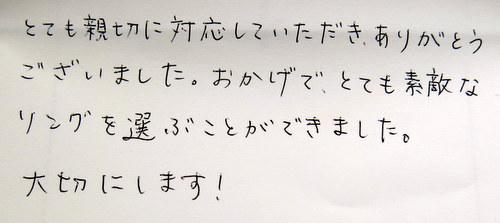 とても親切に対応していただき、ありがとう
ございました。おかげで、とても素敵な
リングを選ぶことができました。
大切にします!